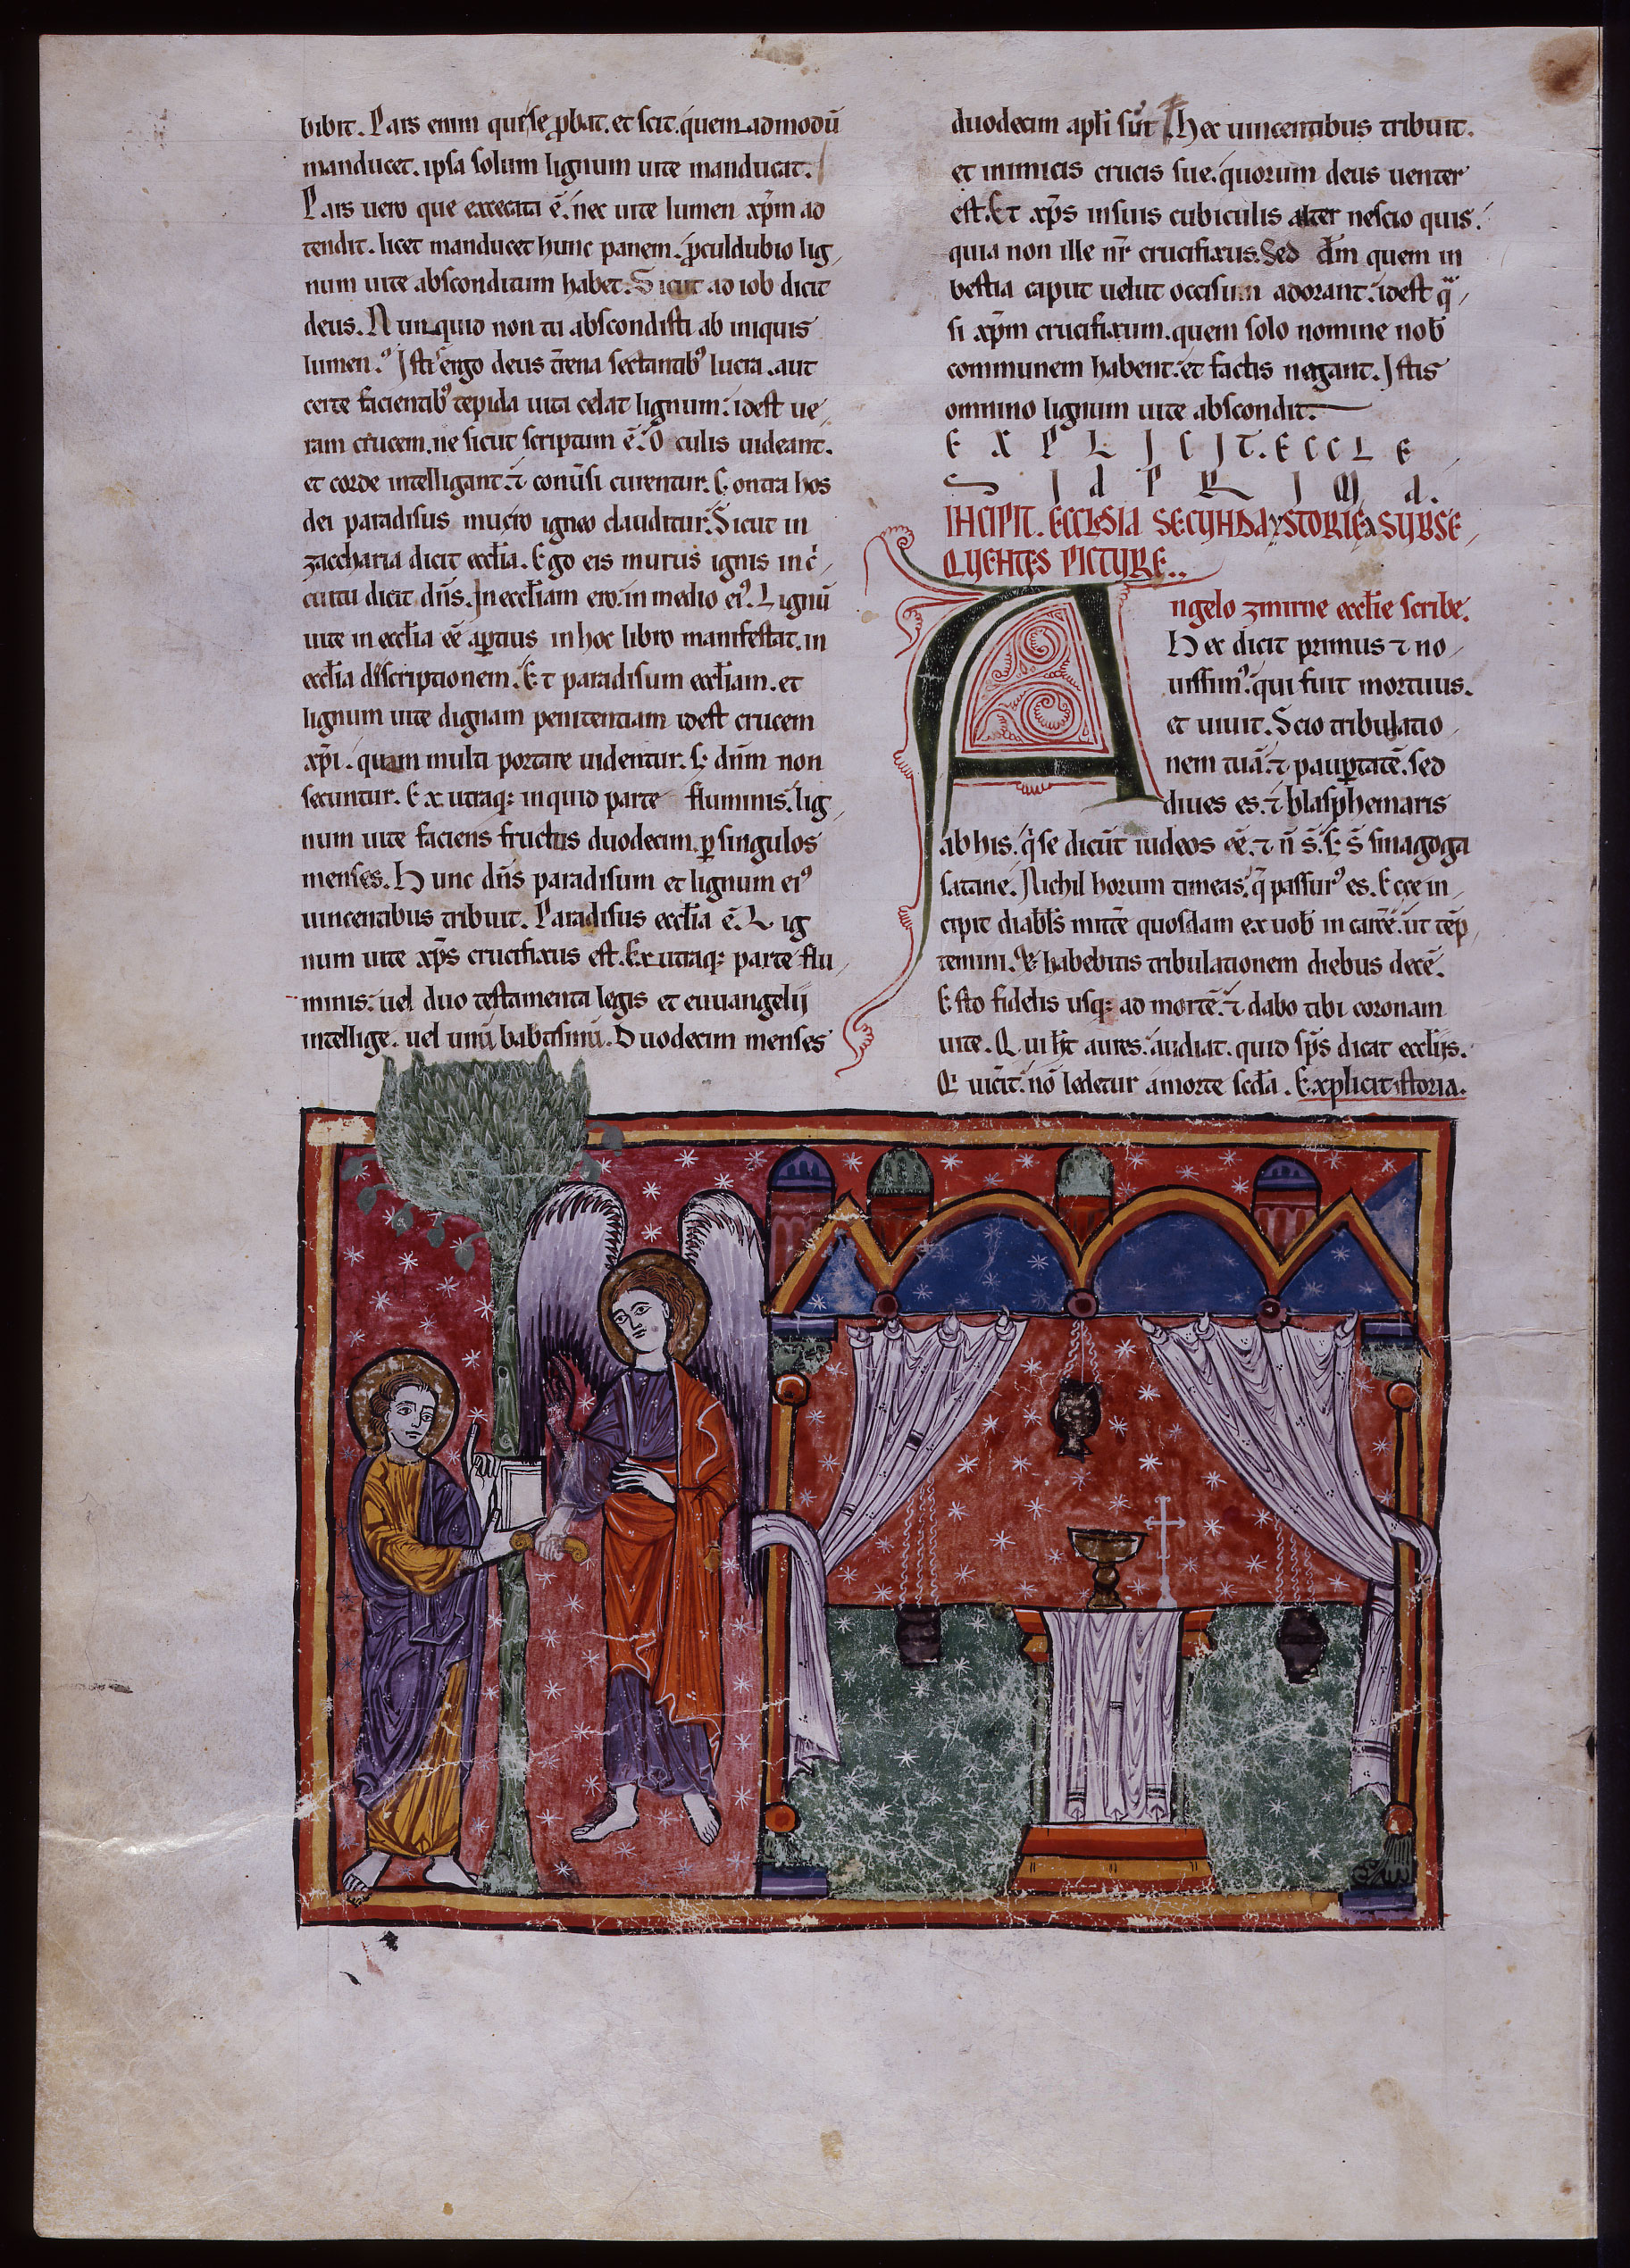 bibit. Pars enim qui se ꝓbat. et scit. quem admodū
manducet. ipsa solum lignum uite manducat.
Pars uero que excecata ē. nec uite lumen xp̄m ad
tendit. licet manducet hunc panem. ꝓculdubio lig
num uite absconditum habet. Sicut ad iob dicit
deus. Nunquid non tu abscondisti ab iniquis
lumen. Isti ergo deus t̄rena sectantibꝰ lucra. aut
certe facientibꝰ tepida uita celat lignum. idest ue
ram crucem. ne sicut scriptum ē. Oculis uideant.
et corde intelligant. ⁊ conūsi curentur. Contra hos
dei paradisus mucro igneo clauditur. Sicut in
zaccharia dicit eccl̄ia. Ego eis murus ignis in c̄
cuitu dicit dn̄s. In eccl̄iam ero. in medio eiꝰ. Lignū
uite in eccl̄ia eē aꝑtius in hoc libro manifestat. in
eccl̄ia discriptionem. Et paradisum eccl̄iam. et
lignum uite dignam penitentiam idest crucem
xp̄i. quam multi portare uidentur. S; dn̄m non
secuntur. Ex utraq; inquid parte fluminis. lig
num uite faciens fructus duodecim. ꝑ singulos
menses. Hunc dn̄s paradisum et lignum eiꝰ
uincentibus tribuit. Paradisus eccl̄ia ē. Lig
num uite xp̄s crucifixus est. Ex utraq; parte flu
minis. uel duo testamenta legis et euuangelij
intellige. uel unū babtismū. Duodecim menses
duodecim apl̄i sūt Hec uincentibus tribuit.
et inimicis crucis sue. quorum deus uenter
est. Et xp̄s in suis cubiculis alter nescio quis.
quia non ille nr̄ crucifixus. Sed dm̄ quem in
bestia caput uelut occisum adorant. idest qͣ
si xp̄m crucifixum. quem solo nomine nob̄
communem habent. et factis negant. Istis
omnino lignum uite abscondit.
EXPLICIT. ECCLE
SIA PRIMA.
INCIPIT. ECCLESIA SECUNDA YSTORIE SUBSE
QUENTES PICTURE..
Angelo zmirne eccl̄ie scribe.
Hec dicit primus ⁊ no
uissimꝰ. qui fuit mortuus.
et uiuit. Scio tribulatio
nem tuā. ⁊ pauꝑtatē. sed
diues es. ⁊ blasphemaris
ab his. q̇ se dicūt iudeos eē. ⁊ n̄ s̄. S; s̄ sinagoga
satane. Nichil horum timeas. q̄ passurꝰ es. Ecce in
cipit diabl̄s mittē quosdam ex uob̄ in carcē. ut tēp
temini. Et habebitis tribulationem diebus decē.
Esto fidelis usq; ad mortē. ⁊ dabo tibi coronam
uite. Qui h̄t aures. audiat. quid sp̄s dicat eccl̄ijs.
Q uic̄it. nō ledetur a morte sc̄da. Explicit storia.